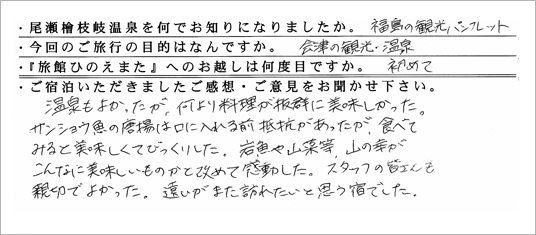 ・尾瀬檜枝岐温泉を何でお知りになりましたか。 福島の観光パンフレット
・今回のご旅行の目的はなんですか。 会津の観光・温泉
・『旅館ひのえまた』へのお越しは何度目ですか。 初めて
・ご宿泊いただきましたご感想・ご意見をお聞かせ下さい。
温泉もよかったが、何より料理が抜群に美味しかった。
サンショウ魚の唐揚は口に入れる前抵抗があったが、食べて
みると美味しくてびっくりした。岩魚や山菜等、山の幸が
こんなに美味しいものかと改めて感動した。スタッフの皆さんも
親切でよかった。遠いがまた訪れたいと思う宿でした。